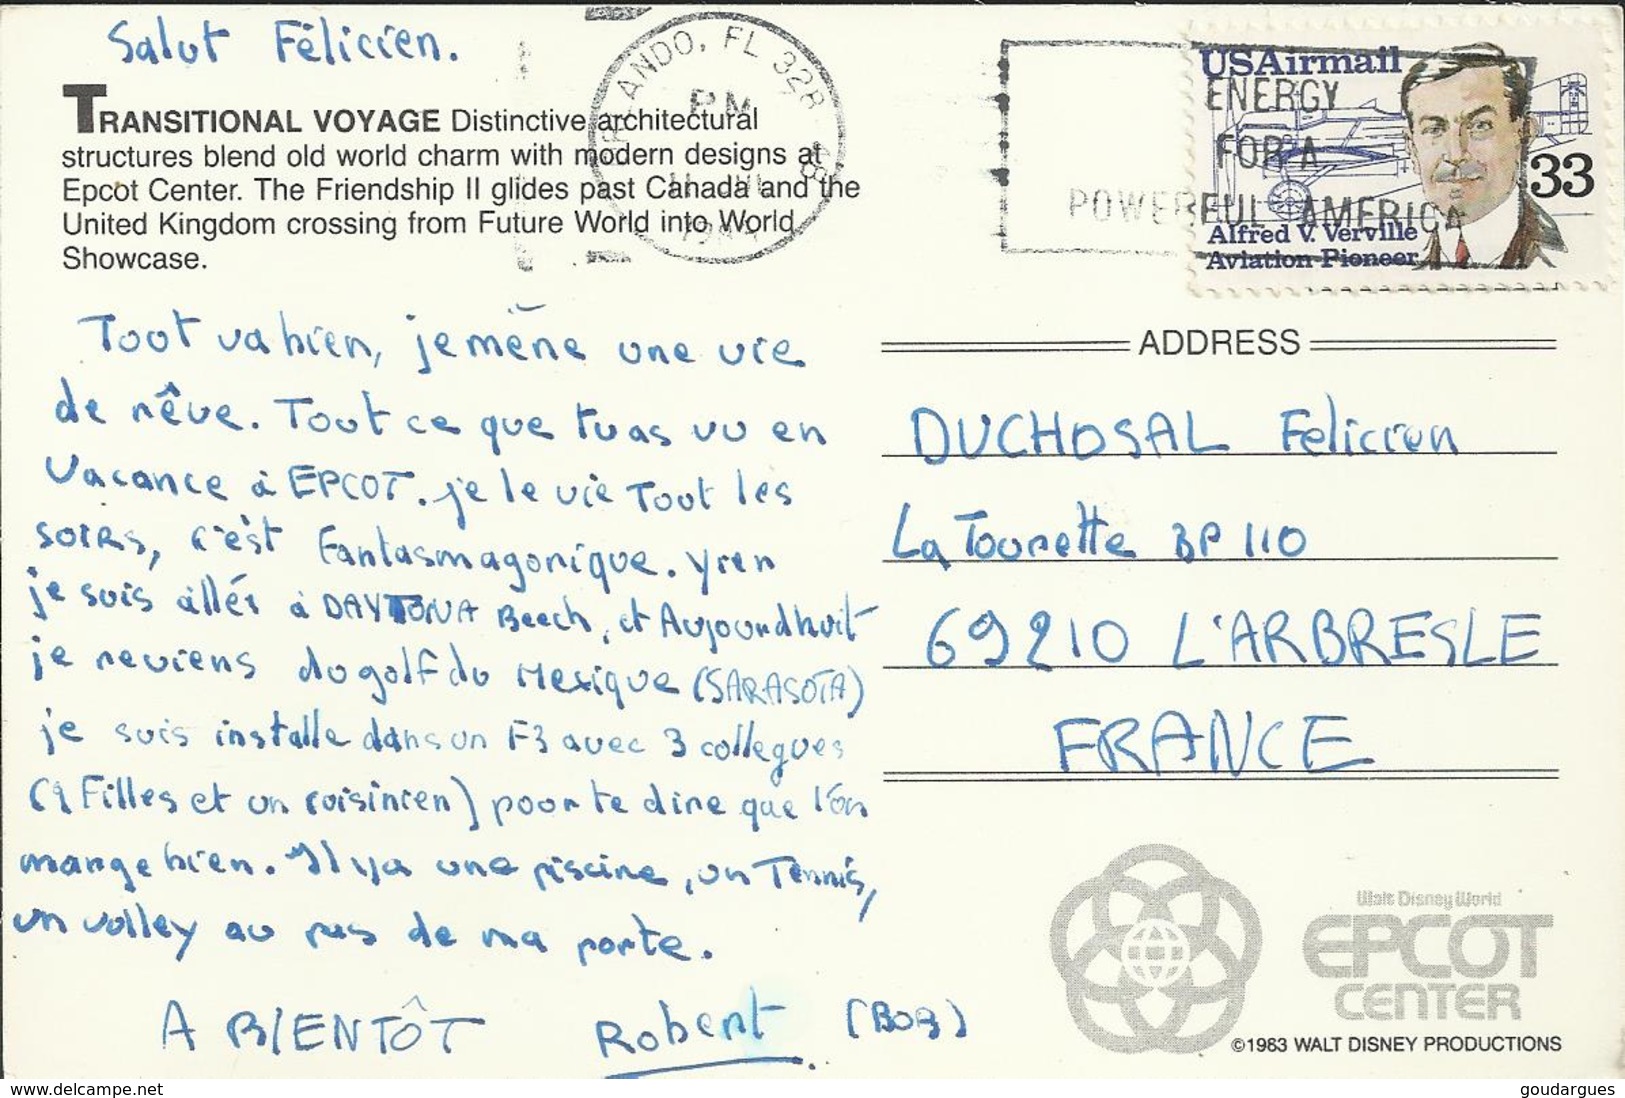 Salut Félicien.
TRANSITIONAL VOYAGE Distinctive architectural
structures blend old world charm with modern designs at
Epcot Center. The Friendship II glides past Canada and the
United Kingdom crossing from Future World into World
Showcase.
Tout va bien, je mène une vie
de rêve. Tout ce que tu as vu en
vacance à EPCOT. je le vie Tout les
soirs, c'est fantasmagorique. yren
je suis allér à DAYTONA Beech, et Aujourdhuit
je reviens du golf du Mexique (SARASOTA)
je suis installe dans un F3 avec 3 collegues
(2 Filles et un cuisinien) pour te dire que l'on
mange bien. Il y a une piscine, un Tennis,
un volley au pas de ma porte.
A BIENTÔT Robert (BOB)
ORLANDO, FL 328
PM
ENERGY
FOR A
POWERFUL AMERICA
USAirmail
33
Alfred V. Verville
Aviation Pioneer
ADDRESS
DUCHOSAL Felicien
La Tourette BP 110
69210 L'ARBRESLE
FRANCE
Walt Disney World
EPCOT
CENTER
©1983 WALT DISNEY PRODUCTIONS
delcampe.net
goudargues